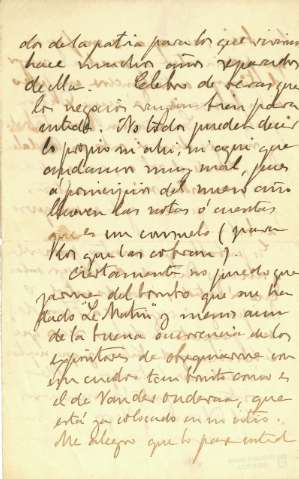 dos de la patria para los que vivimos
hace muchos años separados
de ella. Celebro de veras que
los negocios vayan bien para
usted. No todos pueden decir
lo propio ni ahi, ni aqui que
andamos muy mal, pues
á principios del nuevo año
llueven las notas ó cuentas
que es un consuelo (para
los que las cobran).
Ciertamente no puedo que
jarme del bombo que me ha
dado Le Matin y menos aun
de la buena ocurrencia de los
expositores de obsequiarme con
un cuadro tan bonito como es
el de Vander Ouderaa, que
está ya colocado en mi
Me alegro que lo pase usted